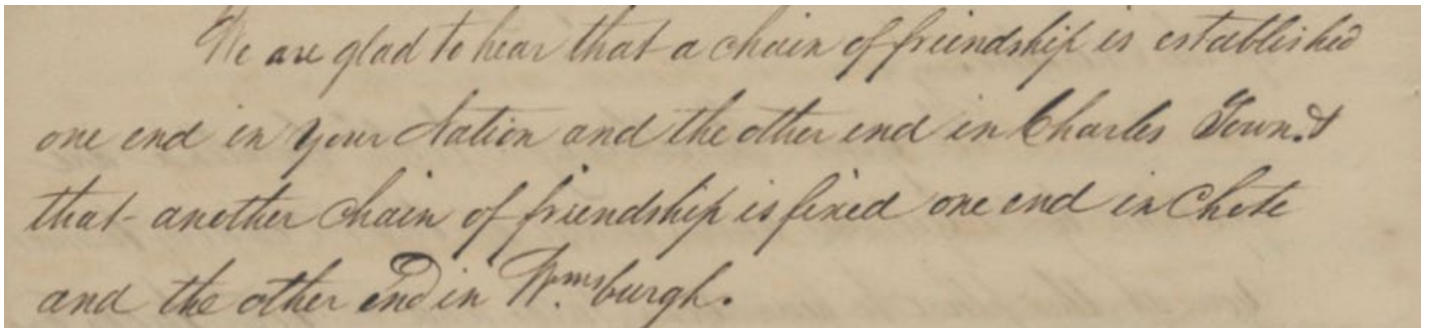 We are glad to hear that a chain of friendship is established
one end in your Nation and the other end in Charles Town. &
that another chain of friendship is fixed one end in Chote
and the other end in Wmsburgh.